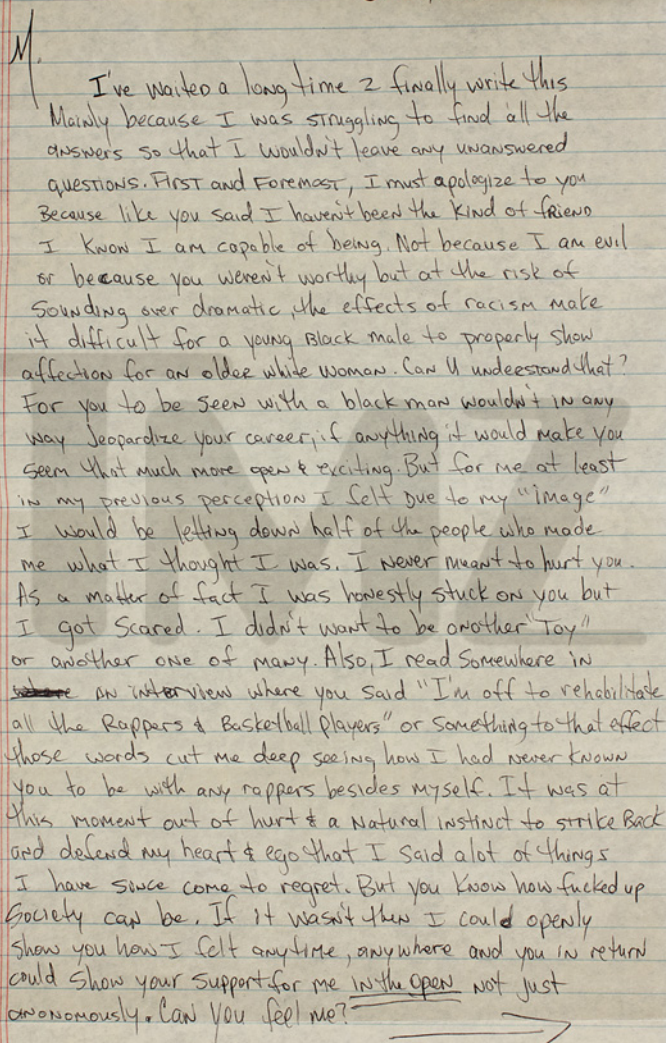 M.
I've waited a long time 2 finally write this
Mainly because I was struggling to find all the
answers so that I wouldn't leave any unanswered
questions. First and Foremost, I must apologize to you
Because like you said I haven't been the kind of friend
I know I am capable of being. Not because I am evil
or because you weren't worthy but at the risk of
sounding over dramatic, the effects of racism make
it difficult for a young Black male to properly show
affection for an older white woman. Can U understand that?
For you to be seen with a black man wouldn't in any
way Jeopardize your career, if anything it would make you
seem that much more open & exciting. But for me at least
in my previous perception I felt Due to my "image"
I would be letting down half of the people who made
me what I thought I was. I never meant to hurt you.
As a matter of fact I was honestly stuck on you but
I got scared. I didn't want to be another "Toy"
or another one of many. Also, I read somewhere in
an interview where you said "I'm off to rehabilitate
all the Rappers & Basketball Players" or something to that effect
those words cut me deep seeing how I had never known
you to be with any rappers besides myself. It was at
this moment out of hurt & a natural instinct to strike Back
and defend my heart & ego that I said alot of things
I have since come to regret. But you know how fucked up
Society can be. If it wasn't then I could openly
show you how I felt anytime, anywhere and you in return
could show your support for me in the open not just
anonomously. Can you feel me?
TMZ